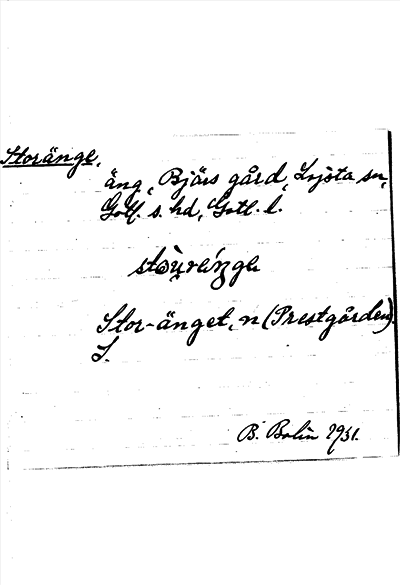 Storänge,
äng, Bjärs gård, Lojsta sn,
Gotl. s. hd, Gotl. l.
Stor-änget, n (Prestgården).
B. Bolin 1931.